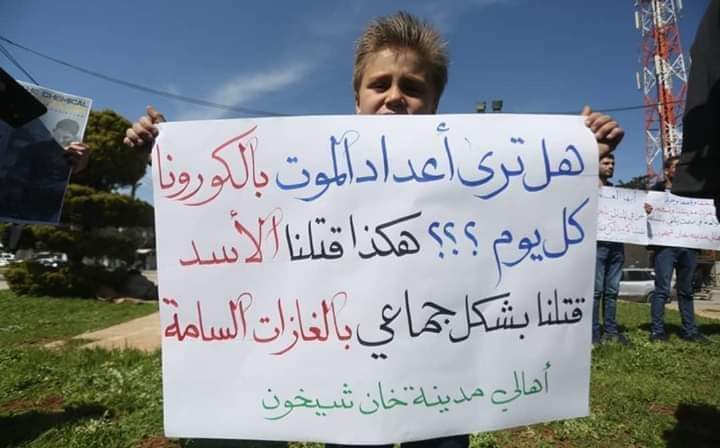 هل ترى أعداد الموت بالكورونا
كل يوم ؟؟؟ هكذا قتلنا الأسد
قتلنا بشكل جماعي بالغازات السامة
أهالي مدينة خان شيخون
CHEMICAL